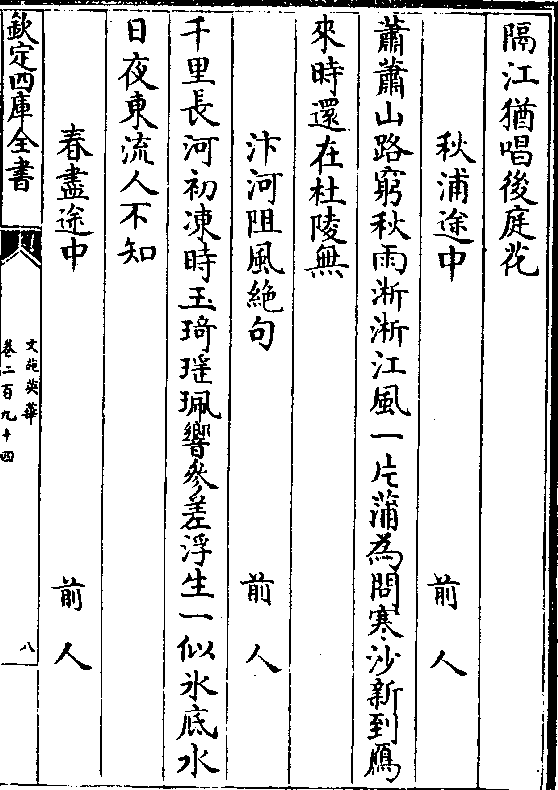 隔江猶唱後庭花
秋浦途中 前人
蕭蕭山路窮秋雨淅淅江風一片蒲為問寒沙新到鴈
來時還在杜陵無
汴河阻風絶句 前人
千里長河初凍時玉琦瑶珮響參差浮生一似氷底水
日夜東流人不知
春盡途中 前人
欽定四庫全書
文苑英華
卷二百九十四
八